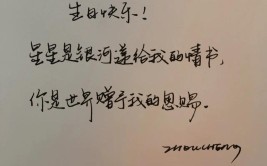 生日快乐！
星星是银河递给我的情书，
你是世界赠予我的恩赐。
ZHOUCHENG